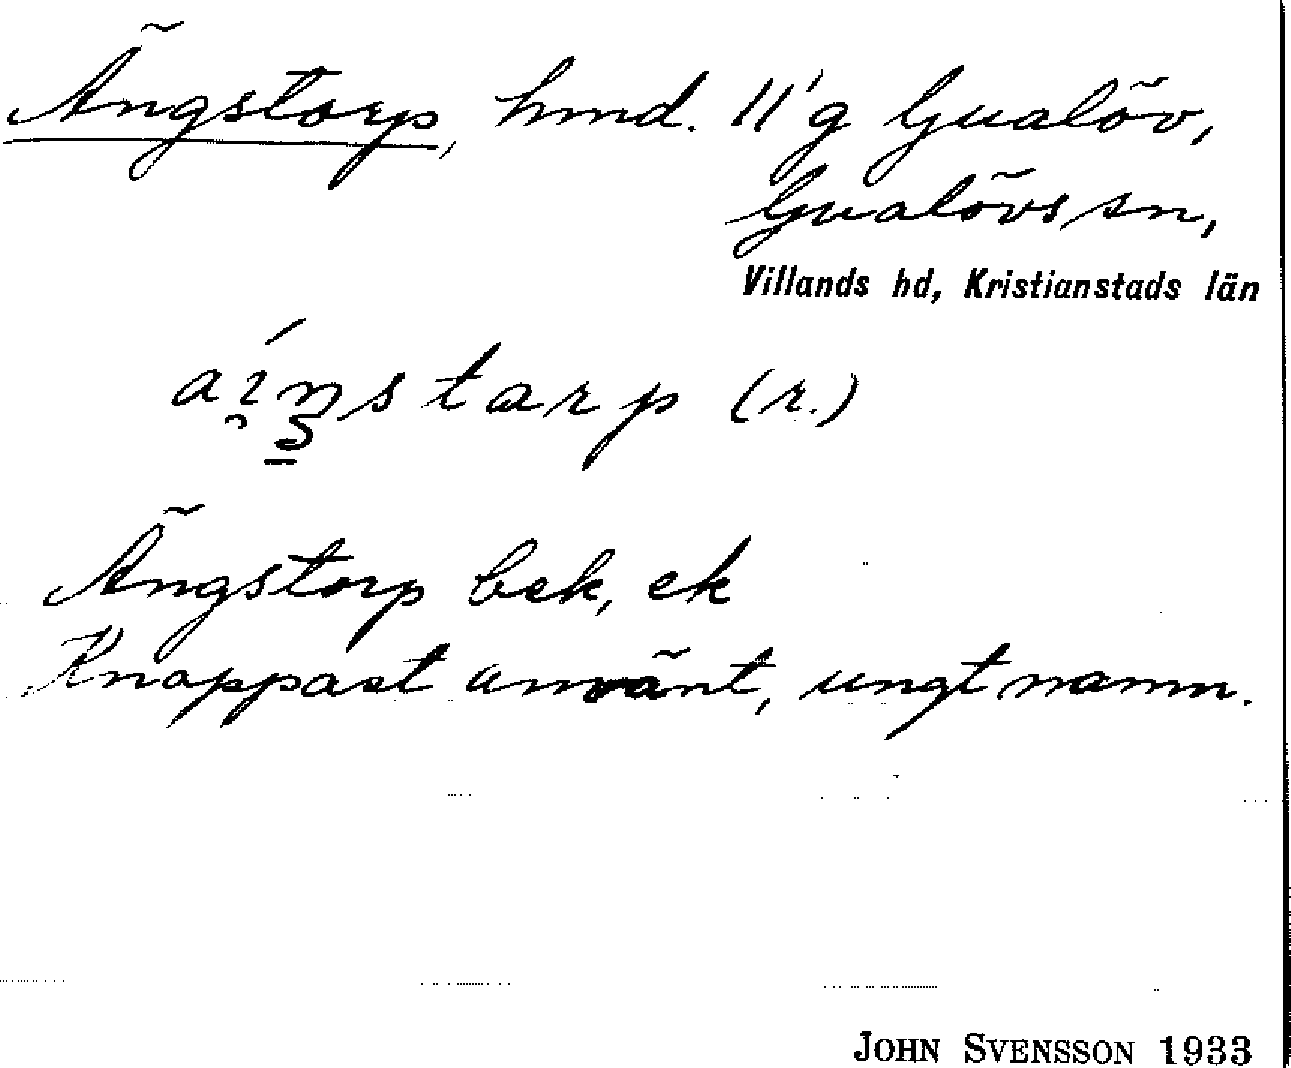 Ängstorp, hmd. 11'g Gualöv,
Gualövs sn,
Villands hd, Kristianstads län
aínstarp (r.)
Ängstorp bek, ek
Knappast använt, ungt namn.
JOHN SVENSSON 1933